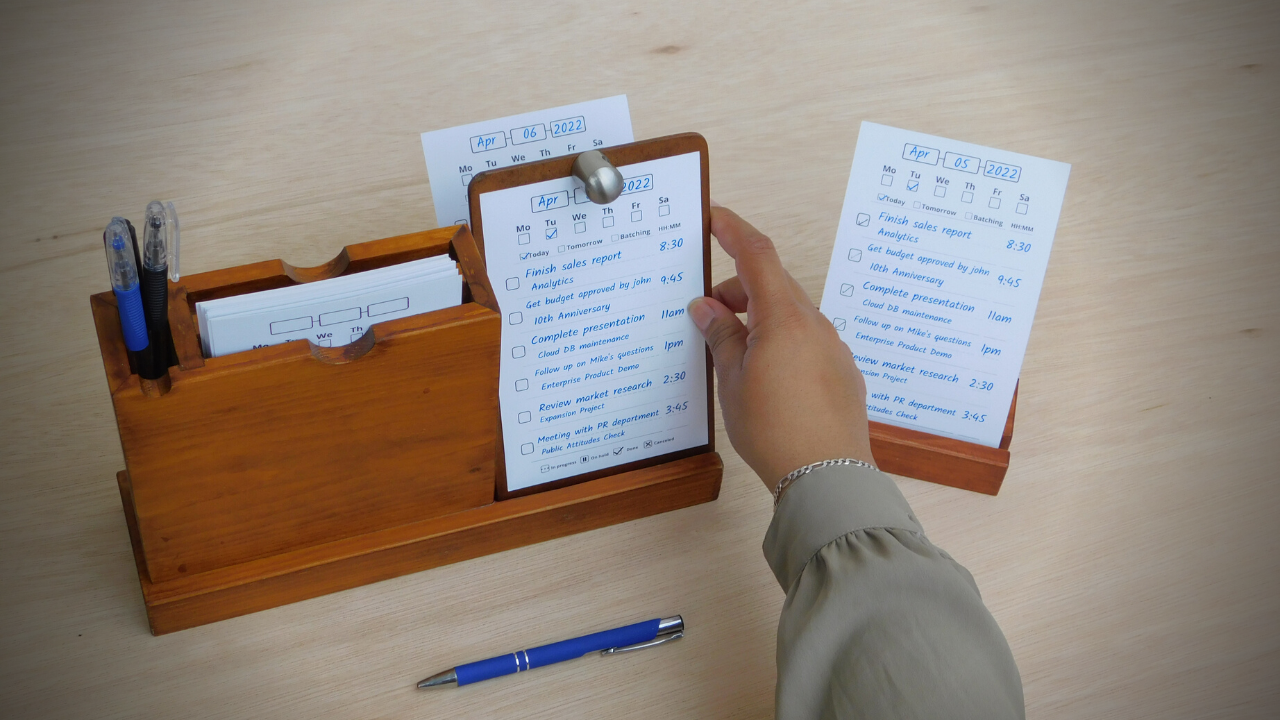 Apr 06 2022
Mo Tu We Th Fr Sa
Apr 2022
Mo Tu We Th Fr Sa
Today Tomorrow Batching HH:MM
Finish sales report 8:30
Analytics
Get budget approved by john 9:45
10th Anniversary
Complete presentation 11am
Cloud DB maintenance
Follow up on Mike's questions 1pm
Enterprise Product Demo
Review market research 2:30
Expansion Project
Meeting with PR department 3:45
Public Attitudes Check
In progress On hold Done Canceled
We Th
Apr 05 2022
Mo Tu We Th Fr Sa
Today Tomorrow Batching HH:MM
Finish sales report 8:30
Analytics
Get budget approved by john 9:45
10th Anniversary
Complete presentation 11am
Cloud DB maintenance
Follow up on Mike's questions 1pm
Enterprise Product Demo
eview market research 2:30
nsion Project
with PR department 3:45
ttitudes Check